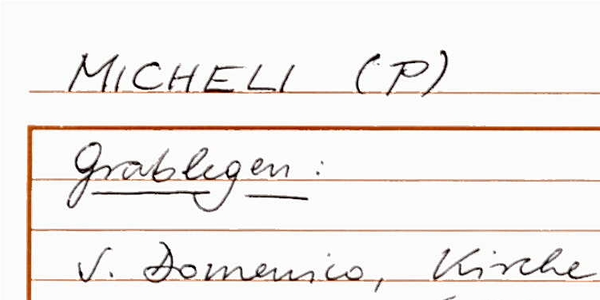 MICHELI (P)
Grablegen :
V. Domenico, Kirche